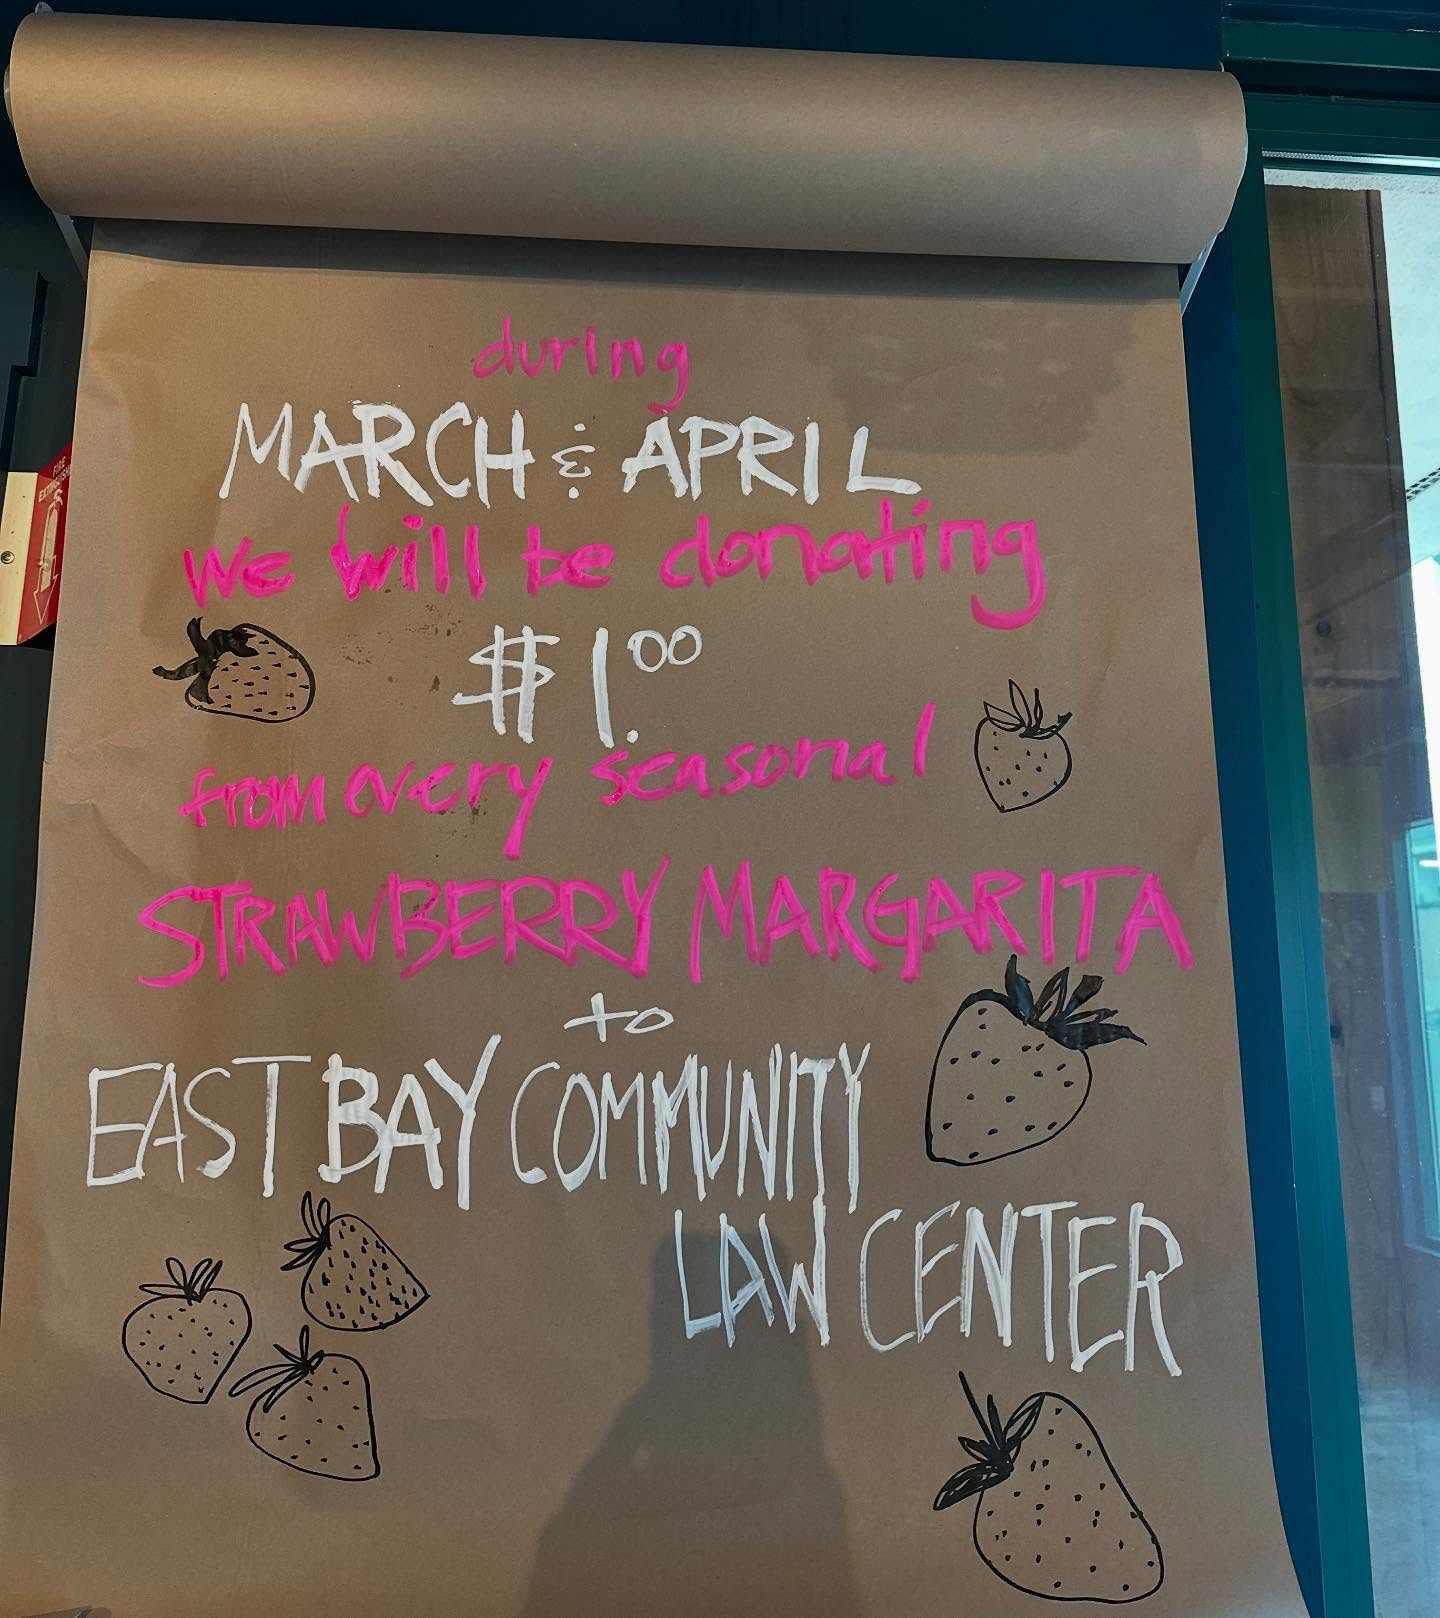 during
MARCH & APRIL
we will be donating
$1.00
from every seasonal
STRAWBERRY MARGARITA
to
EAST BAY COMMUNITY
LAW CENTER
FIRE
EXTINGUISHER